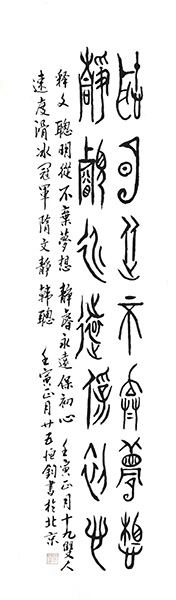 聰明從不棄夢想
靜睿永遠保初心
釋文 聰明從不棄夢想 靜睿永遠保初心 壬寅正月十九雙人
速度滑冰冠軍隋文靜韓聰 壬寅正月廿五恒鈞書於北京